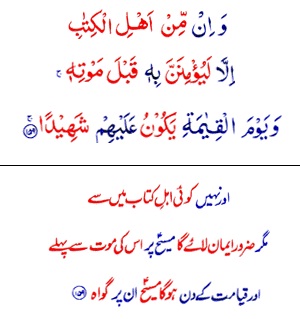 وَ اِنْ مِّنْ اَهْلِ الْكِتٰبِ
اِلَّا لَیُؤْمِنَنَّ بِهٖ قَبْلَ مَوْتِهٖ ۚ
وَ یَوْمَ الْقِیٰمَةِ یَكُوْنُ عَلَیْهِمْ شَهِیْدًا ۚ ﴿۱۵۹﴾
اور نہیں کوئی اہلِ کتاب میں سے
مگر ضرور ایمان لائے گا مسیحؑ پر اس کی موت سے پہلے
اور قیامت کے دن ہوگا مسیحؑ ان پر گواہ ﴿۱۵۹﴾